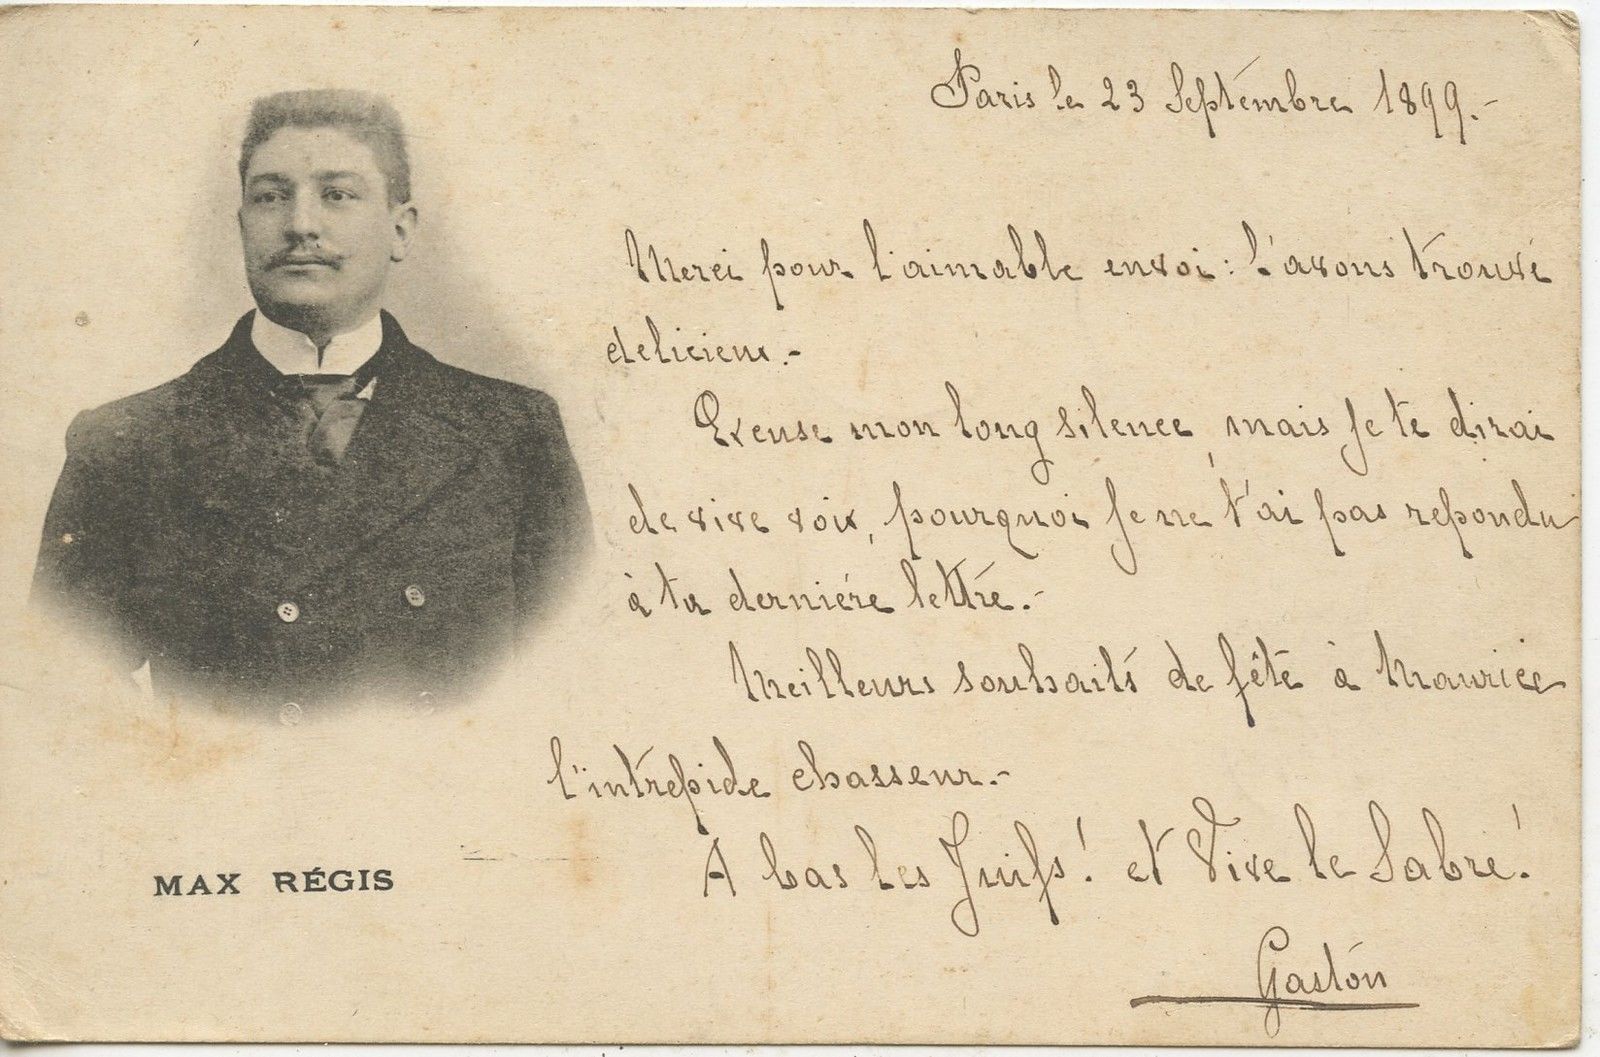 Paris le 23 Septembre 1899.-
Merci pour l'aimable envoi : l'avons trouvé
delicieux.-
Excuse mon long silence, mais je te dirai
de vive voix, pourquoi je ne t'ai pas repondu
à ta derniére lettre.-
Meilleurs souhaits de fête à Maurice
l'intrepide chasseur.-
A bas les Juifs ! et Vive le Sabre !
Gaston
MAX RÉGIS